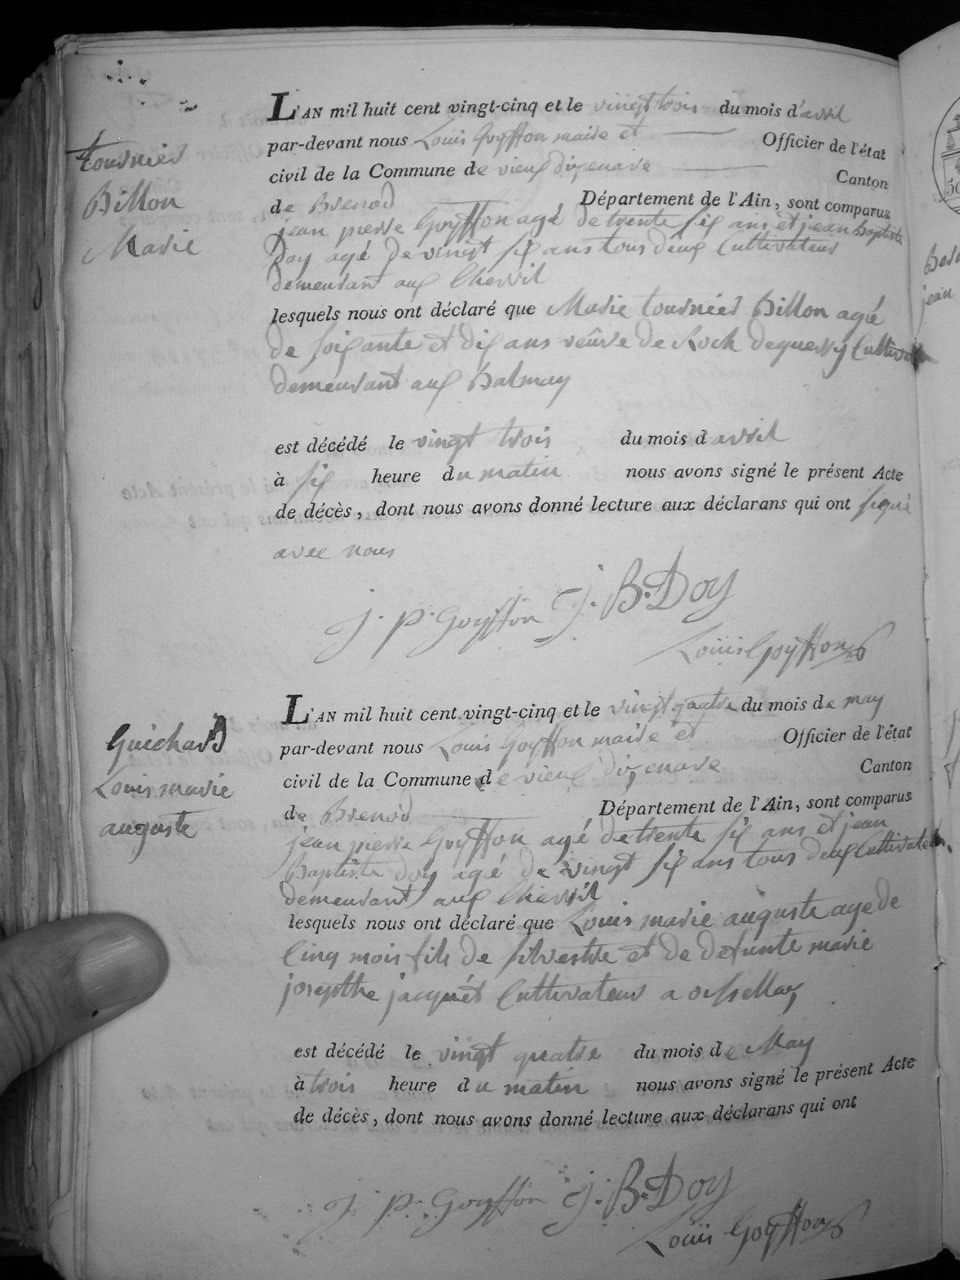 L'AN mil huit cent vingt-cinq et le vingt trois du mois d'avril
par-devant nous Louis Goyffon maire et Officier de l'état
civil de la Commune de vieux d'izenave Canton
de Brenod Département de l'Ain, sont comparus
jean pierre Goyffon agé de trente six ans et jean Baptiste
Doy agé de vingt six ans tous deux Cultivateur
demeurant aux Chevril
lesquels nous ont déclaré que Marie tournier Billon agié
de soixante et dix ans veûve de Roch deguerry Cultiva
demeurant aux Balmay
est décédé le vingt trois du mois d avril
à six heure du matin nous avons signé le présent Acte
de décès, dont nous avons donné lecture aux déclarans qui ont signé
avec nous
J. P. Goyffon J. B. Doy
Louis Goyffon
tournier
Billon
Marie
L'AN mil huit cent vingt-cinq et le vingt quatre du mois de may
par-devant nous Louis Goyffon maire et Officier de l'état
civil de la Commune de vieux d'izenave Canton
de Brenod Département de l'Ain, sont comparus
jean pierre Goyffon agé de trente six ans et jean
Baptiste doy agé de vingt six ans tous deux Cultivateur
demeurant aux Chevril
lesquels nous ont déclaré que Louis marie auguste age de
Cinq mois fils de silvestre et de defunte marie
josepthe jacquét Cultivateur a
est décédé le vingt quatre du mois de May
à trois heure du matin nous avons signé le présent Acte
de décès, dont nous avons donné lecture aux déclarans qui ont
J. P. Goyffon J. B. Doy
Louis Goyffon
Guichard
Louis marie
auguste
jean